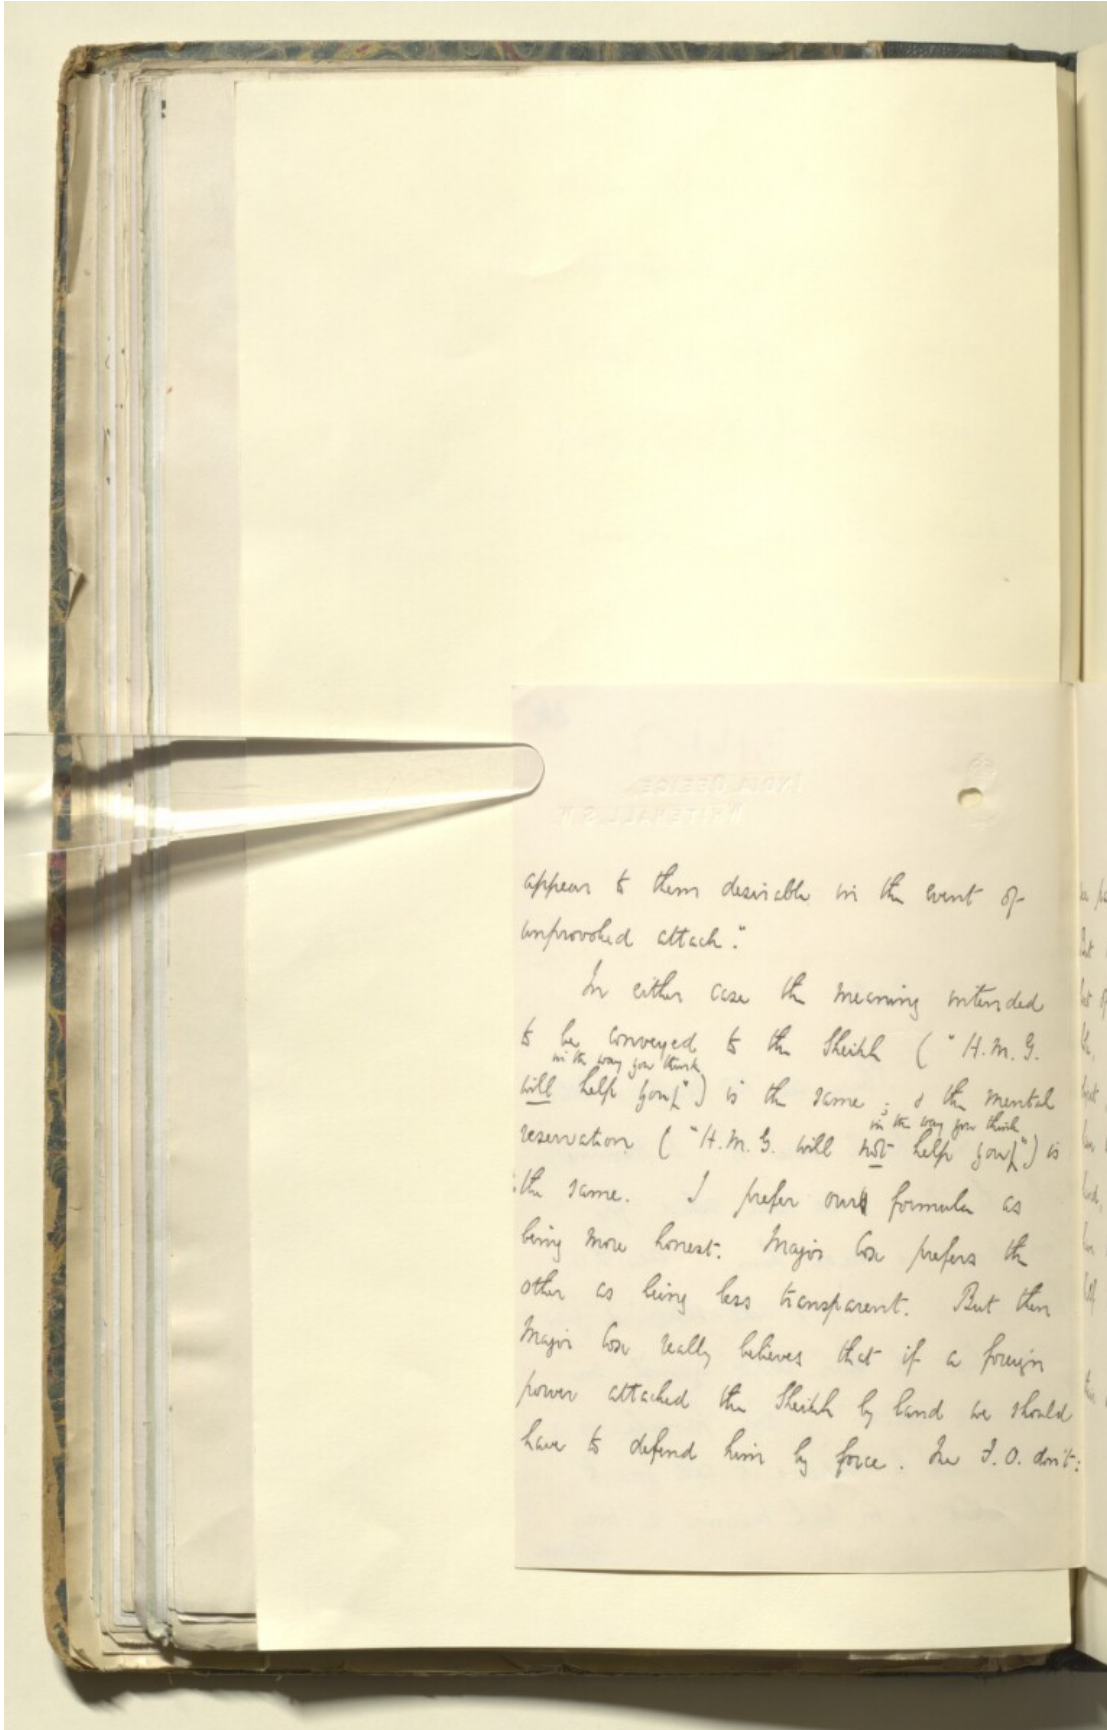 INDIA OFFICE,
WHITEHALL, S.W.
appears to them desirable in the event of
unprovoked attack."
In either case the meaning intended
to be conveyed to the Sheikh ( "H.M.G.
in the way you think
will help you" ) is the same ; & the mental
in the way you think
reservation ( "H.M.G. will not help you" ) is
the same. I prefer our formula as
being more honest. Major Cox prefers the
other as being less transparent. But then
Major Cox really believes that if a foreign
power attacked the Sheikh by land we should
have to defend him by force. The F.O. don't: